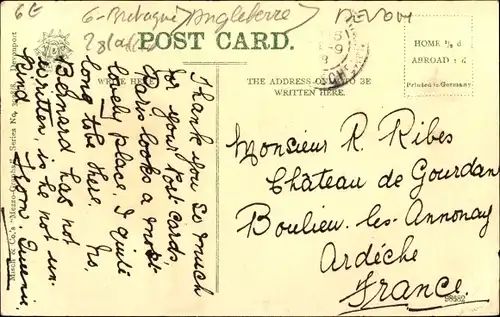 6E
G-Bretagne (Angleterre)
DEVON
POST CARD.
HOME ½ d
ABROAD 1 d
Printed in Germany
WRITE HERE
THE ADDRESS ONLY TO BE
WRITTEN HERE.
Thank you so much
for your Post Cards,
Paris looks a most
lovely place, I quite
long to be there. Mrs.
Bernard has not
written, is he not un-
kind.
From
Misch & Co.'s "Mezzo-Graphs" Series No.
Monsieur R. Ribes
Château de Gourdan
Boulieu-les-Annonay
Ardèche
France.